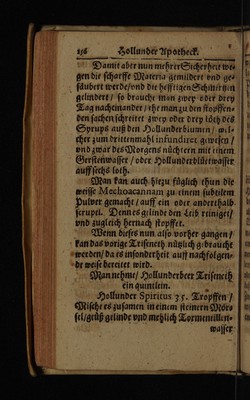 156 Hollunder Apotheck.
Damit aber nun mehrer Sicherheit we-
gen die scharffe Materia gemildert und ge-
säubert werde/und die hefftigen Schmertzen
gelindert/ so brauche man zwey oder drey
Tag nacheinander/ ehr man zu den stopffen-
den sachen schreitet zwey oder drey loth des
Syrups auß den Hollunderblumen/ wel-
cher zum drittenmahl infundiret gewesen/
und zwar des Morgens nüchtern mit einem
Gerstenwasser/ oder Hollunderblütwasser
auff sechs loth.
Man kan auch hierzu füglich thun die
weisse Mechoacannam zu einem subtilem
Pulver gemacht/ auff ein oder anderthalb
scrupel. Denn es gelinde den Leib reiniget/
und zugleich hernach stopffet.
Wenn dieses nun also vorher gangen/
kan das vorige Triseneth nützlich gebraucht
werden/ da es insonderheit auff nachfolgen-
de weise bereitet wird.
Man nehme/ Hollunderbeer Triseneth
ein quintlein.
Hollunder Spiritus 35. Tropffen/
Mische es zusamen in einem steinern Mör-
sel/ gieß gelinde und mehlich Tormentillen-
wasser